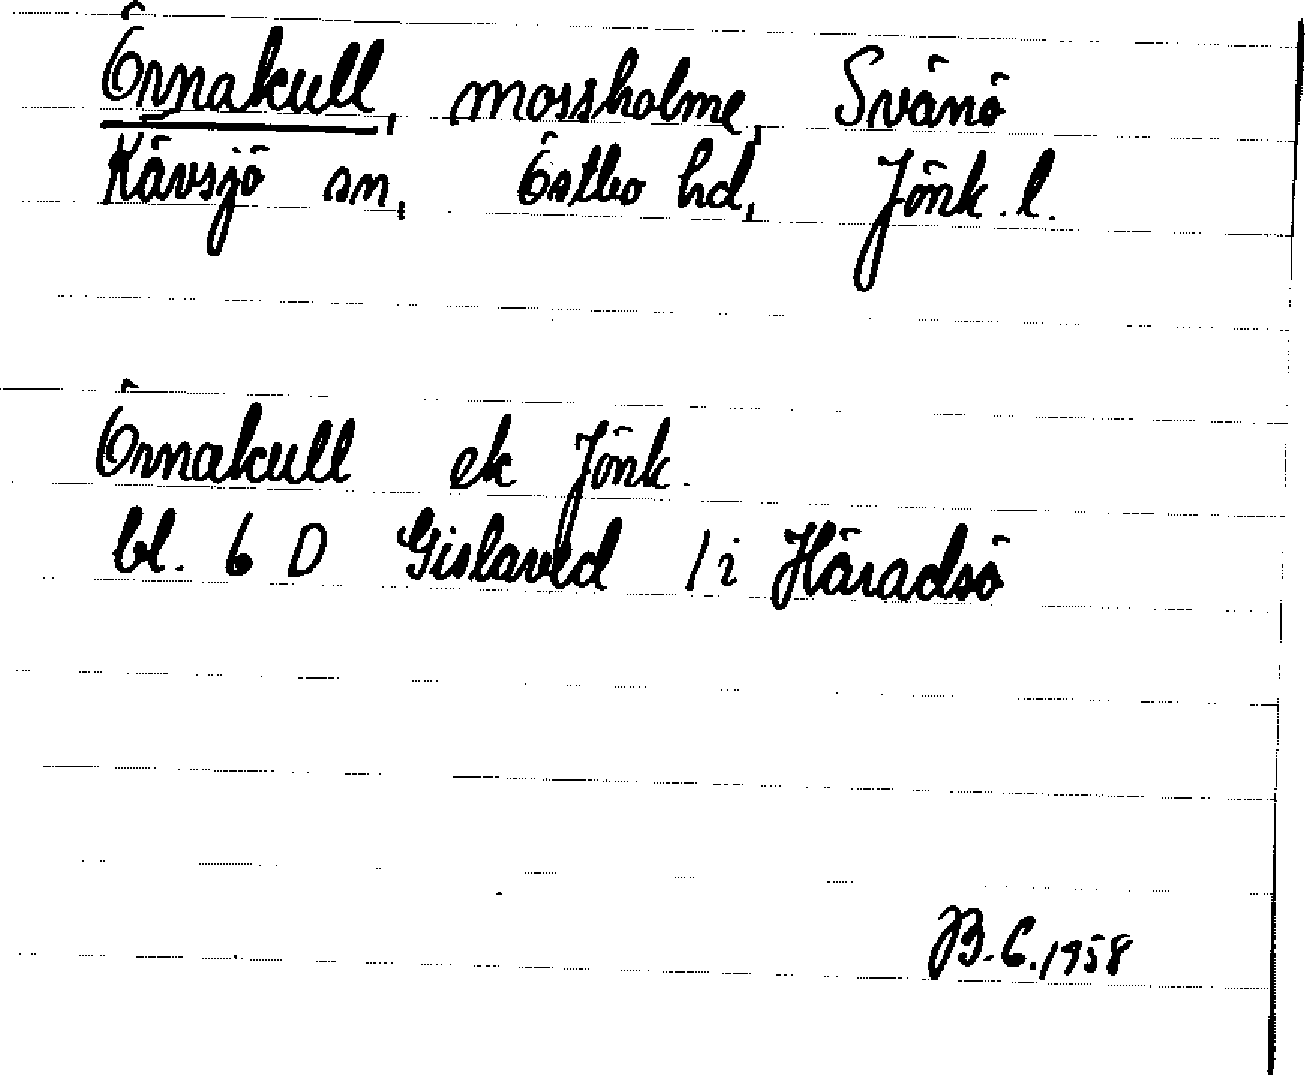 Örnakull, mossholme, Svänö
Kävsjö sn, Östbo hd, Jönk. l.
Örnakull ek Jönk.
bl. 6 D Gislaved / i Häradsö
B.C. 1958